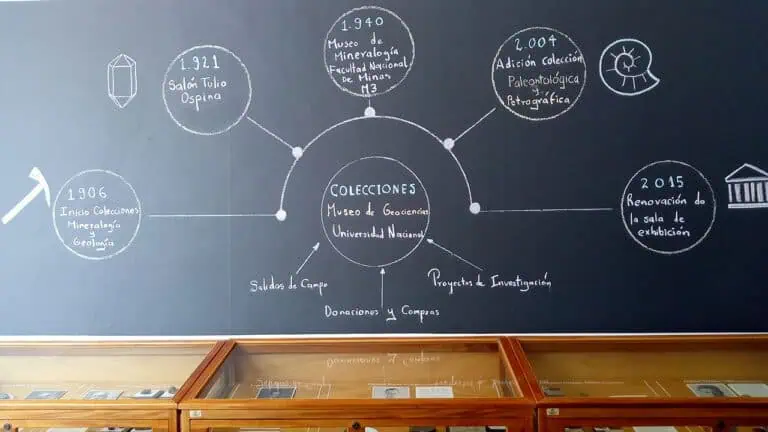 1.940
Museo de
Mineralogía
Facultad Nacional
De Minas
M3
1.921
Salón Tulio
Ospina
2.004
Adición colección
Paleontológica
y
Petrográfica
1906
Inicio Colecciones
Mineralogía
y
Geología
COLECCIONES
Museo de Geociencias
Universidad Nacional
2015
Renovación de
la sala de
exhibición
Salidas de Campo
Donaciones y Compras
Proyectos de Investigación